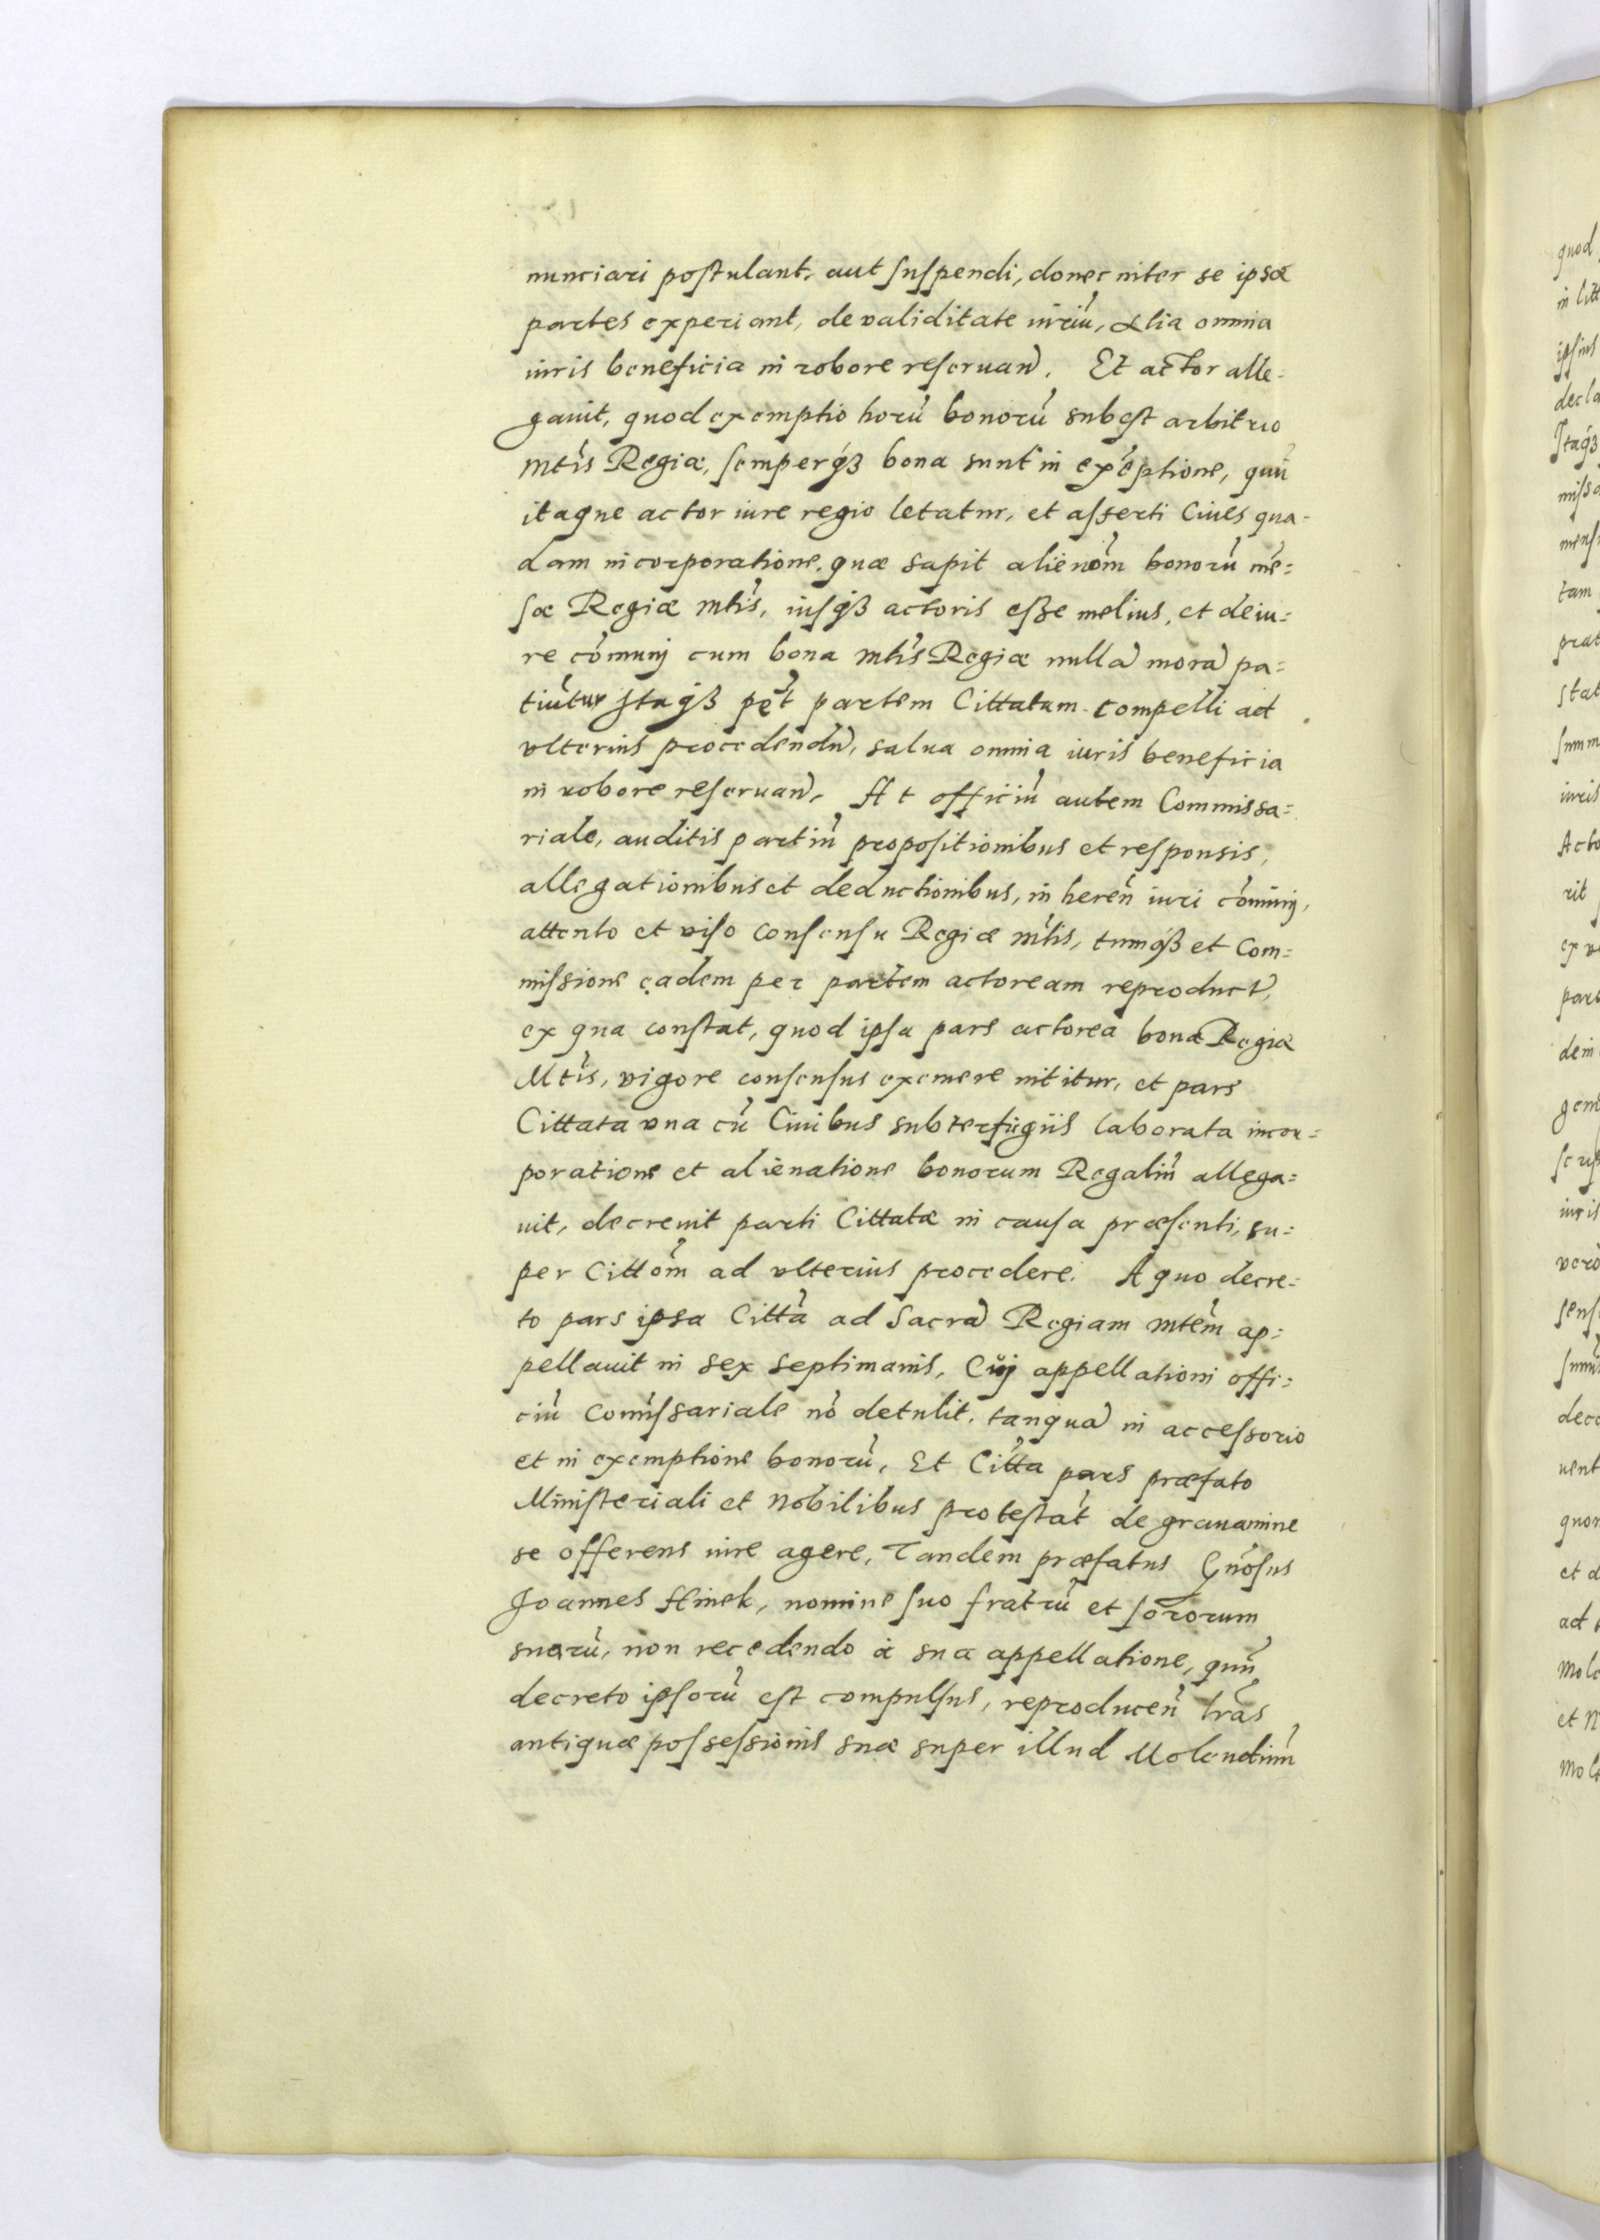 nunciari postulant, aut suspendi, donec inter se ipsæ
partes experiant, de validitate iuriu᷑, alia omnia
iuris beneficia in robore reseruand. Et actor alle-
gauit, quod exemptio horu᷑ bonoru᷑ subest arbitrio
Mtis Regiæ, semperq́ꝫ bona sunt in exe᷑ptione, quu᷑
itaque actor iure regio letatur, et asserti Ciues qua-
dam incorporatione, quæ sapit alieno᷑m bonoru᷑ me᷑=
sæ Regiæ Mtis, iusq́ꝫ actoris esse melius, et de iu=
re co᷑munj cum bona Mtis Regiæ nulla᷑ mora᷑ pa=
tiu᷑tur Itaq́ꝫ pe᷑t partem Cittatam compelli ad
vlterius procedendu᷑, salua omnia iuris beneficia
in robore reseruand. At officiu᷑ autem Commissa=
riale, auditis partiu᷑ propositionibus et responsis,
allegationibus et deductionibus, in heren᷑ iuri co᷑munj,
attento et viso consensu Regiæ Mtis, tumq́ꝫ et Com=
missione eadem per partem actoream reproduct,
ex qua constat, quod ipsa pars actorea bona Regiæ
Mtis, vigore consensus exemere nititur, et pars
Cittata vna cu᷑ Ciuibus subterfugiis laborata incor=
poratione et alienatione bonorum Regaliu᷑ allega=
uit, decreuit parti Cittatæ in causa præsenti, su=
per Citto᷑m ad vlterius procedere. A quo decre=
to pars ipsa Citta᷑ ad Sacra᷑ Regiam Mtem ap=
pellauit in sex septimanis, Cuj appellationi offi=
ciu᷑ Comissariale no᷑ detulit, tanqua᷑ in accessorio
et in exemptione bonoru᷑, Et Citta᷑ pars præfato
Ministeriali et Nobilibus protestat᷑ de grauamine
se offerens iure agere, Tandem præfatus Gn᷑osus
Joannes Hinek, nomine suo fratru᷑ et sororum
suaru᷑, non recedendo à sua appellatione, quu᷑
decreto ipsoru᷑ est compulsus, reproducen᷑ lr᷑as
antiquæ possessionis suæ super illud Molendinu᷑